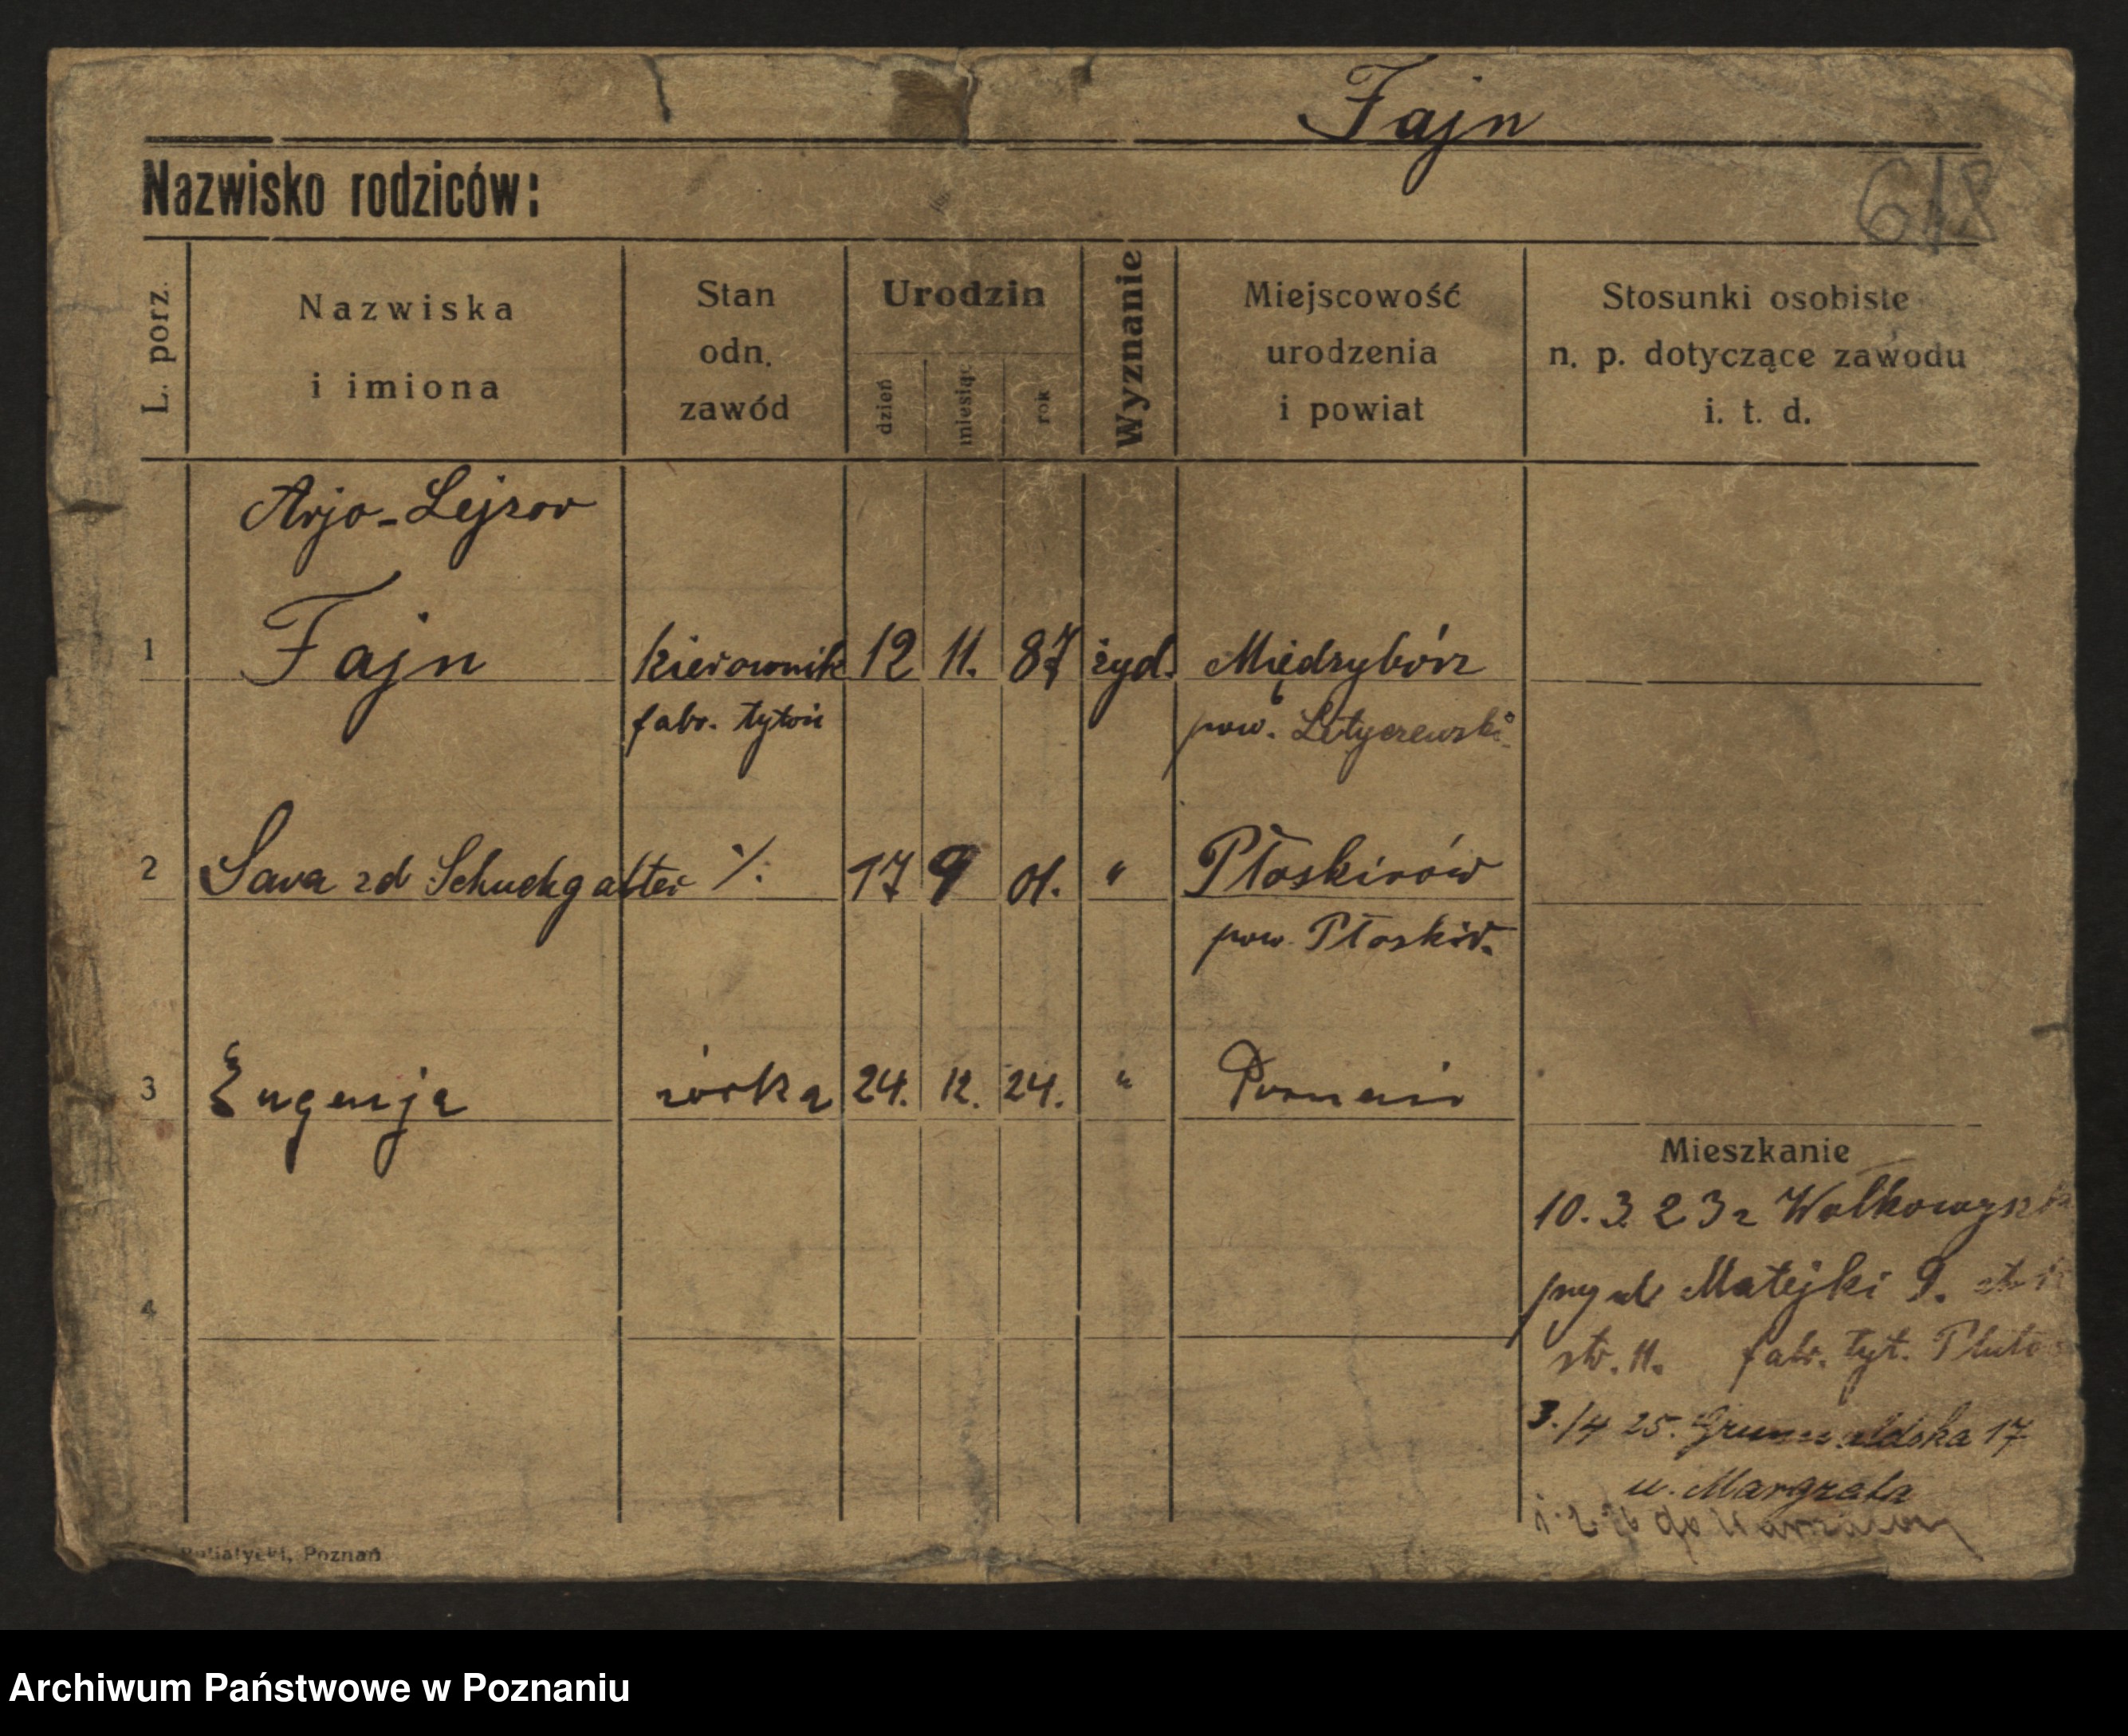 Fajn
Nazwisko rodziców:
618
L. porz.
Nazwiska
i imiona
Stan
odn.
zawód
Urodzin
dzień
miesiąc
rok
Wyznanie
Miejscowość
urodzenia
i powiat
Stosunki osobiste
n. p. dotyczące zawodu
i. t. d.
Arjo-Lejzor
1 Fajn kierownik 12 11. 87 żyd. Międzybórz
fabr. tytoń pow. Letyczewski
2 Sara zd Schuchgalter ./. 17 9 01. " Płoskirów
pow. Płoskir.
3 Eugenja córka 24. 12. 24. " Poznań
Mieszkanie
10. 3. 23 z Wołkowyska
4
przy ul. Matejki 9.
str. 11. fabr. tyt. Pluto
3./4 25. Grunwaldska 17
u. Margzata
do Warszawy
Poznań
Archiwum Państwowe w Poznaniu